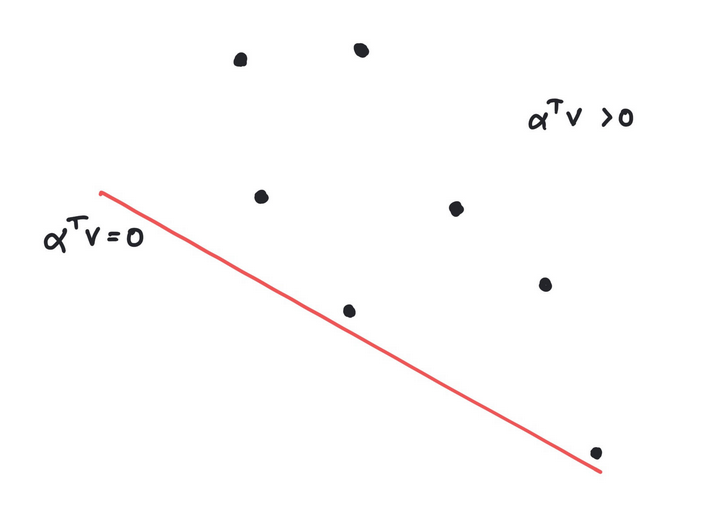 αᵀv >0
αᵀv=0